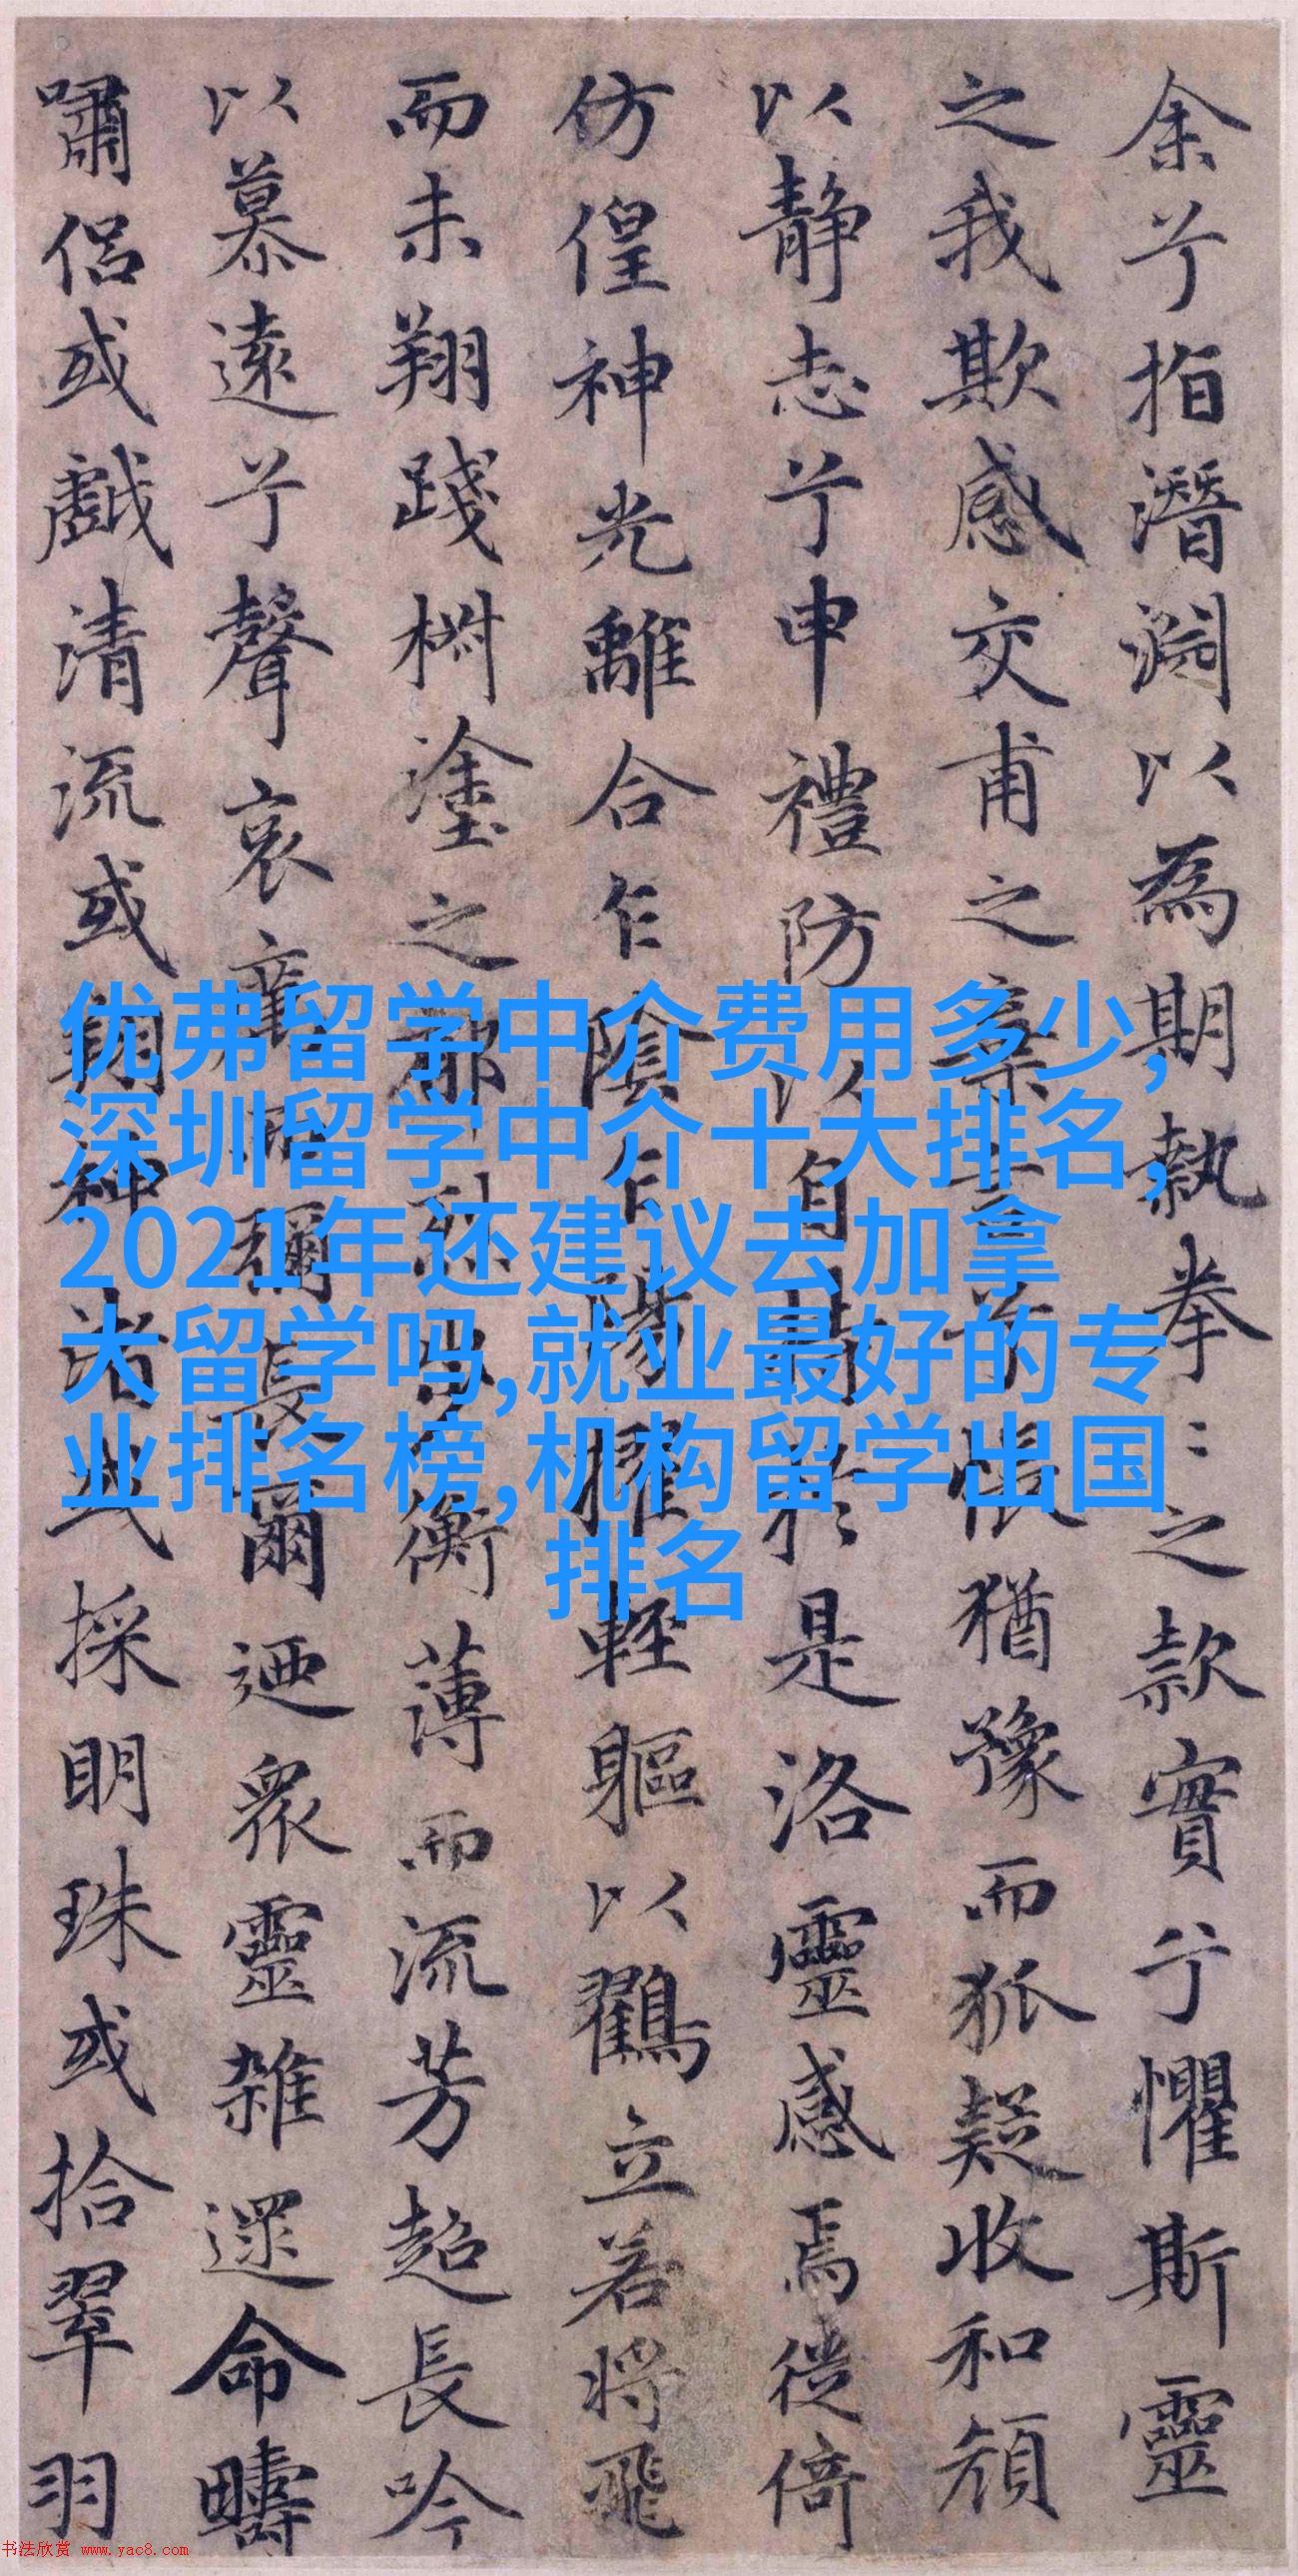 余兮指潛淵以為期執拳〻之款實兮懼斯靈
之我欺感交甫之棄言兮悵猶豫而狐疑收和顏
以靜志兮申禮防以自持於是洛靈感焉徙倚
仿偟神光離合乍陰乍陽擢輕軀以鶴立若將飛
而未翔踐椒塗之郁烈步衡薄而流芳超長吟
以慕遠兮聲哀厲而彌長爾迺衆靈雜遝命疇
嘯侶或戲清流或翔神渚或採明珠或拾翠羽
优弗留学中介费用多少,
深圳留学中介十大排名,
2021年还建议去加拿
大留学吗,就业最好的专
业排名榜,机构留学出国
排名
书法欣赏 www.yac8.com